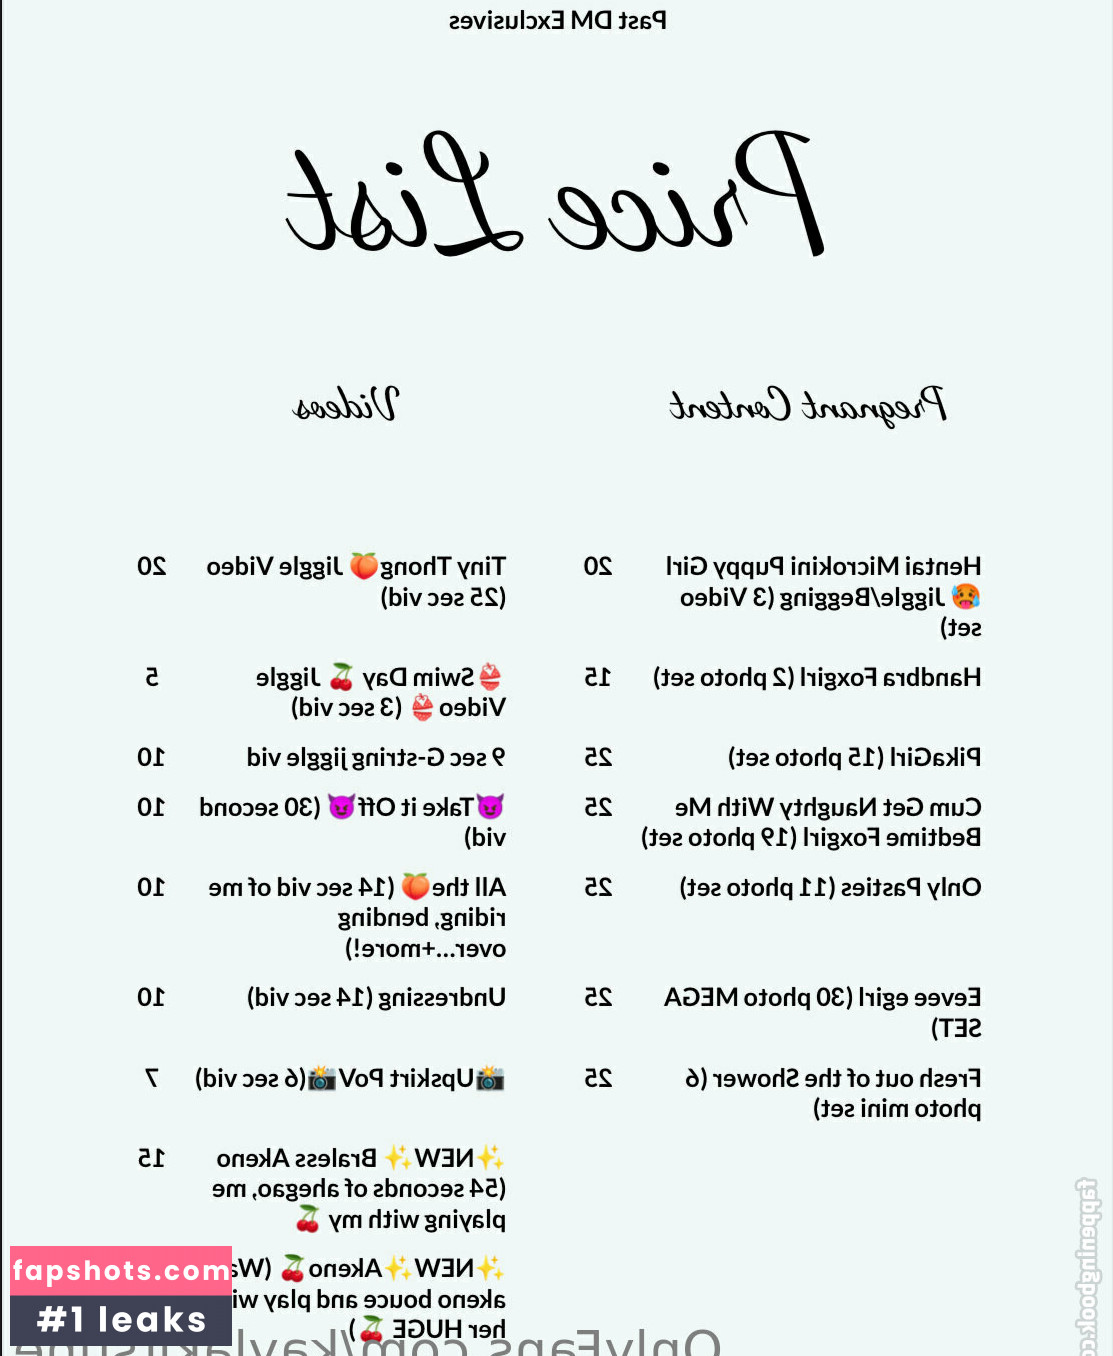 Past DM Exclusives
Price List
Pregnant Content
Hentai Microkini Puppy Girl 20
🥵 Jiggle/Begging (3 Video
set)
Handbra Foxgirl (2 photo set) 15
PikaGirl (15 photo set) 25
Cum Get Naughty With Me 25
Bedtime Foxgirl (19 photo set)
Only Pasties (11 photo set) 25
Eevee egirl (30 photo MEGA 25
SET)
Fresh out of the Shower (6 25
photo mini set)
Videos
Tiny Thong🍑 Jiggle Video 20
(25 sec vid)
👙Swim Day 🍒 Jiggle 5
Video👙 (3 sec vid)
9 sec G-string jiggle vid 10
😈Take it Off😈 (30 second 10
vid)
All the🍑 (14 sec vid of me 10
riding, bending
over...+more!)
Undressing (14 sec vid) 10
📸Upskirt PoV📸(6 sec vid) 7
✨NEW✨ Braless Akeno 15
(54 seconds of ahegao, me
playing with my 🍒
✨NEW✨Akeno🍒 (Wa
akeno bouce and play wi
her HUGE 🍒)
fapshots.com
#1 leaks
fappeningbook.co